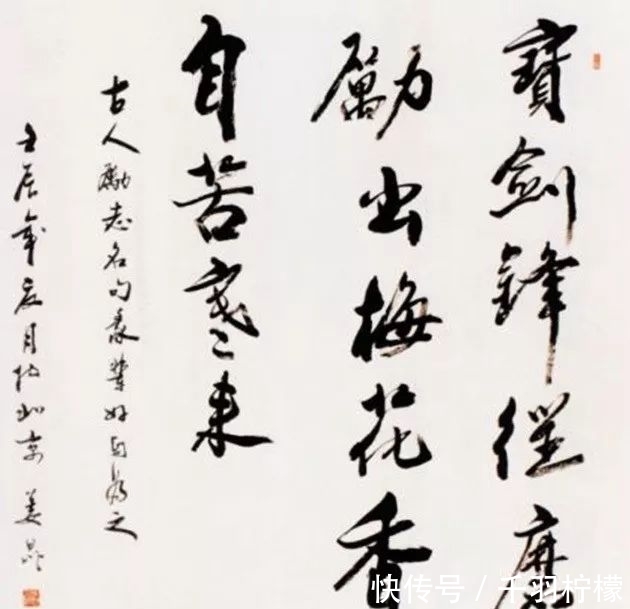 寶劍鋒從磨
勵出梅花香
自苦寒来
古人勵志名句我輩好自為之
壬辰年夏月於北京 姜昆
快传号 / 千羽柠檬